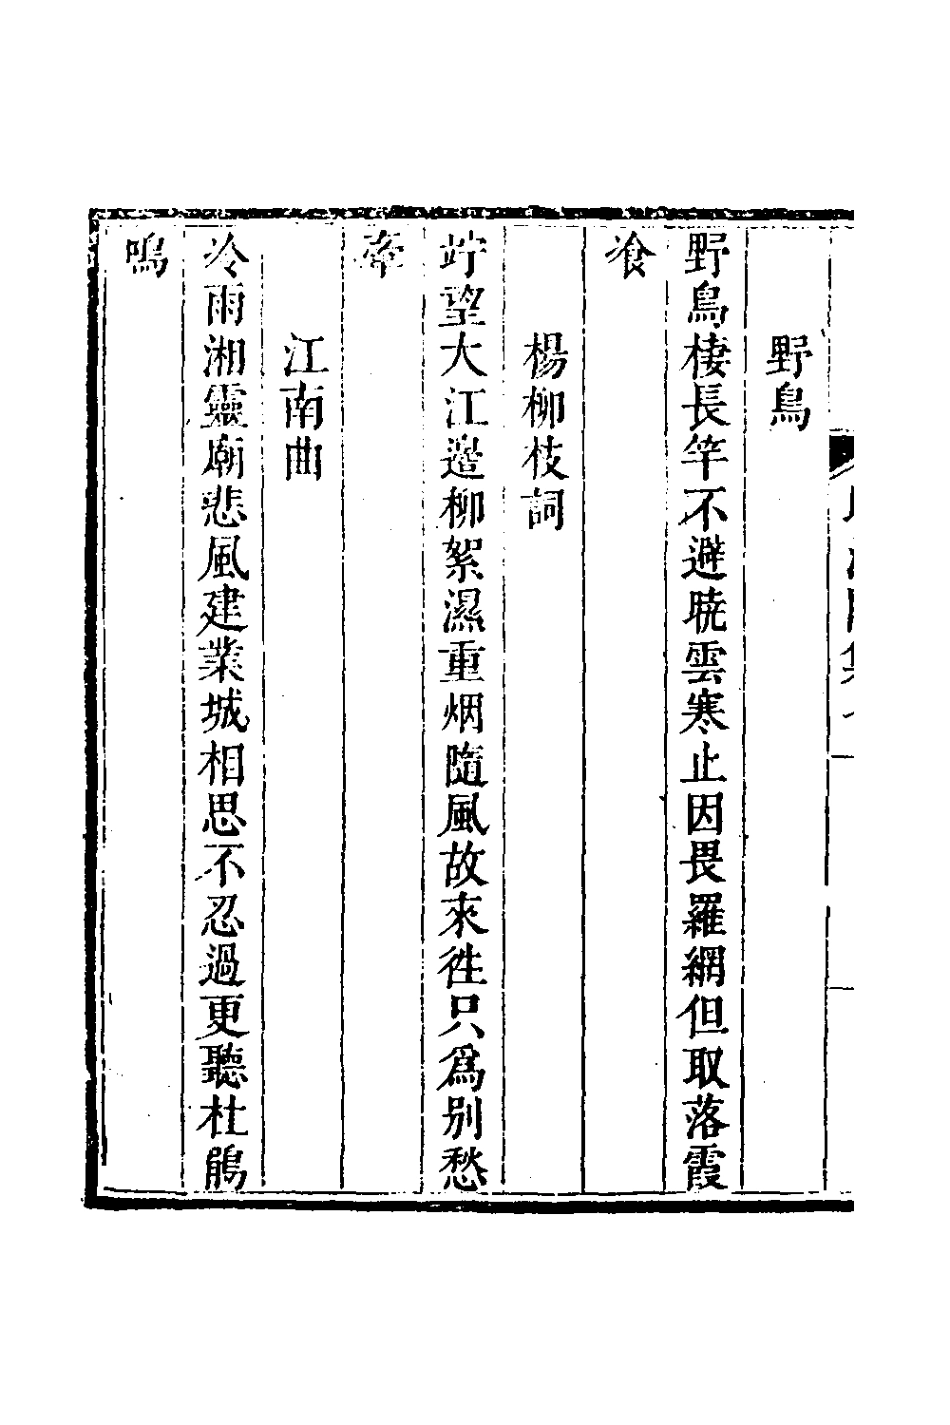 野鳥
野鳥棲長竿不避暁雲寒止因畏羅網但取落霞
飡
楊柳枝詞
竚望大江邉柳絮濕重烟隨風故來徃只爲别愁
牽
江南曲
冷雨湘靈廟悲風建業城相思不忍過更聽杜鵑
鳴